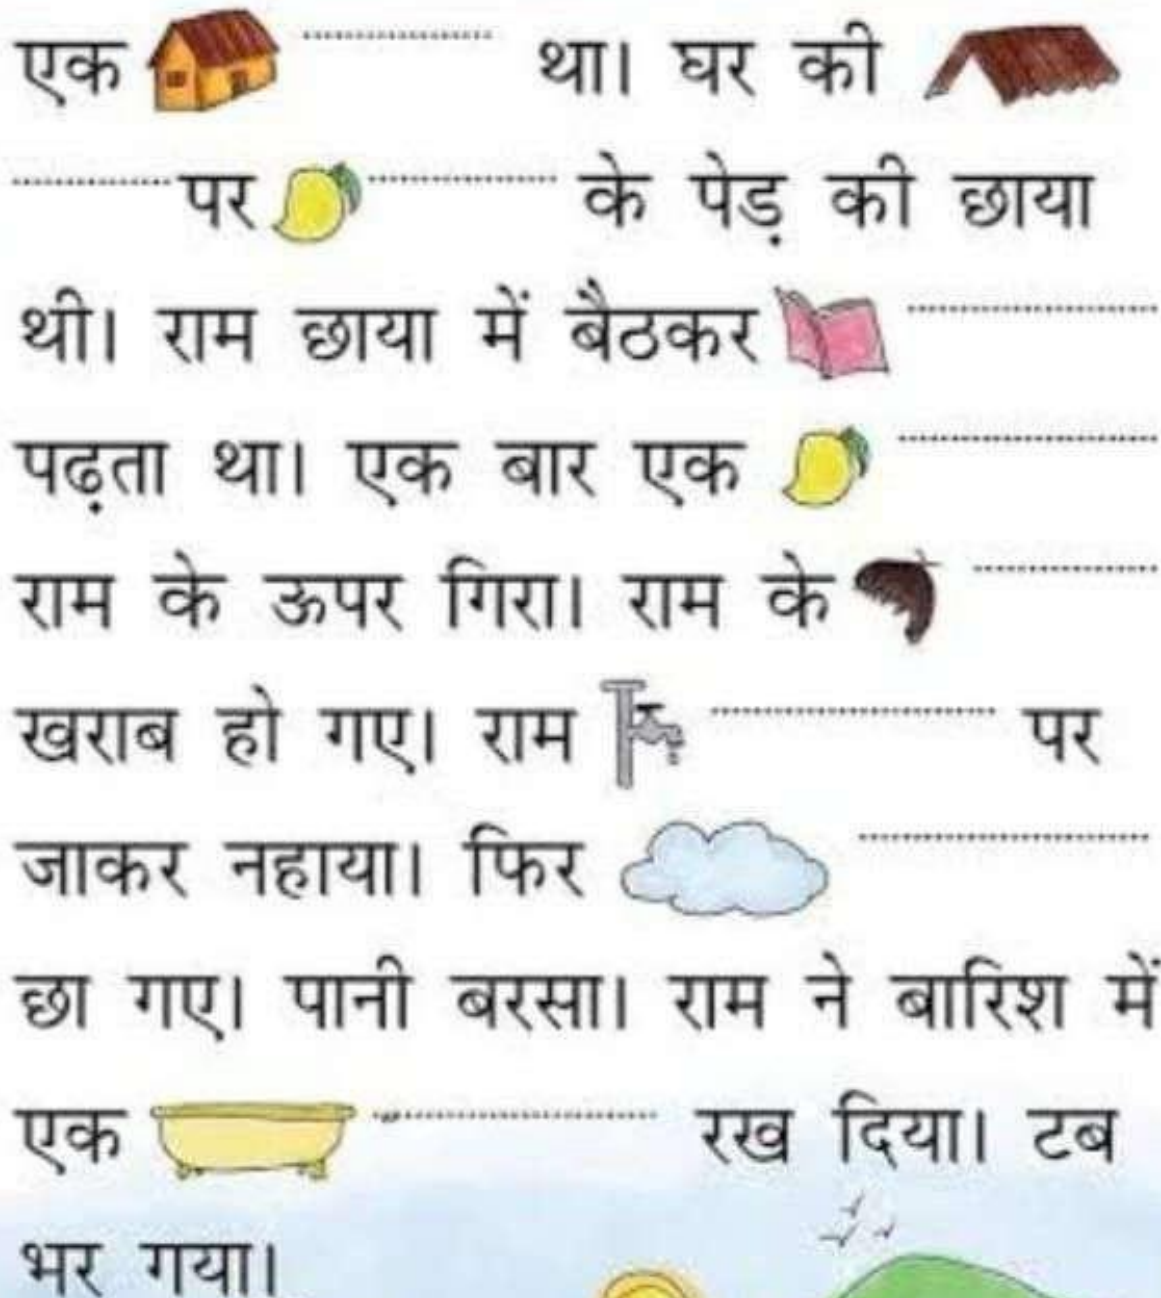 एक .................... था। घर की
................ पर .................... के पेड़ की छाया
थी। राम छाया में बैठकर ..........................
पढ़ता था। एक बार एक ..........................
राम के ऊपर गिरा। राम के ....................
खराब हो गए। राम .............................. पर
जाकर नहाया। फिर ..............................
छा गए। पानी बरसा। राम ने बारिश में
एक .............................. रख दिया। टब
भर गया।